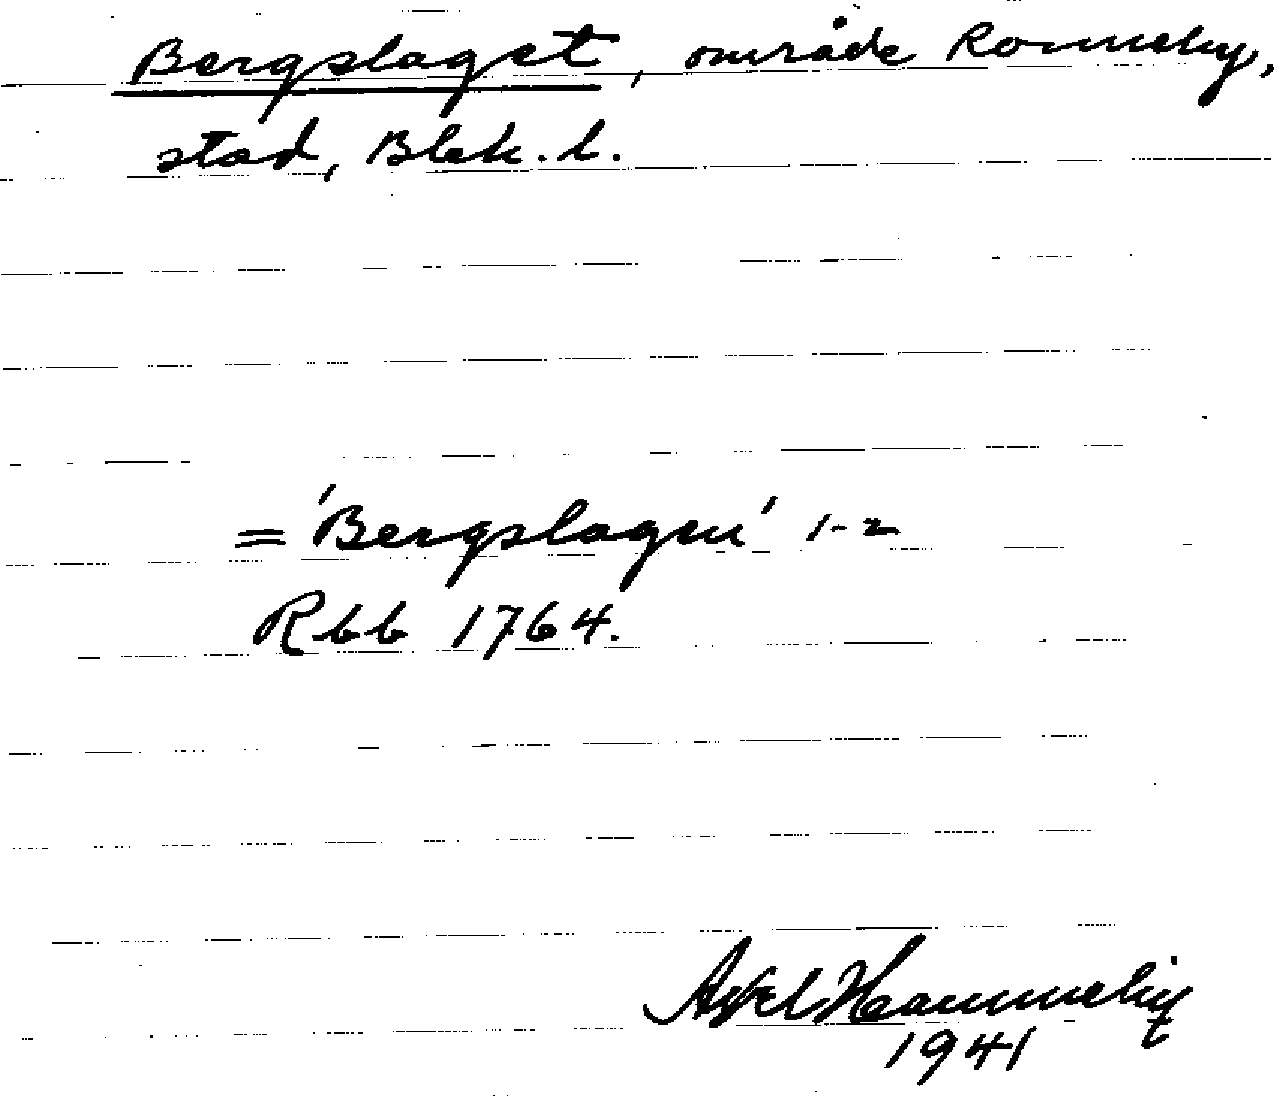 Bergslaget, område Ronneby,
stad, Blek. l.
= 'Bergslagen' 1-2
Rbb 1764.
Axel Hammeby
1941